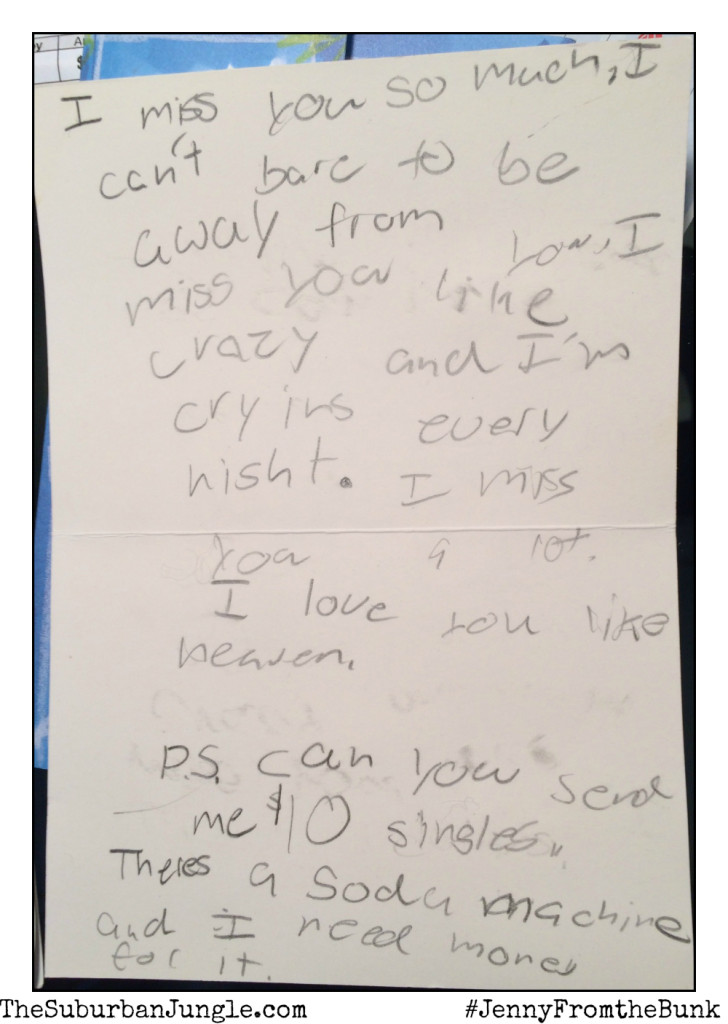 I miss you so much, I
can't bare to be
away from
you, I
miss you like
crazy and I'm
crying every
night. I miss
you a lot.
I love you like
heaven.
P.S. can you send
me $10 singles,,
Theres a soda machine
and I need money
for it.
TheSuburbanJungle.com
#JennyFromtheBunk